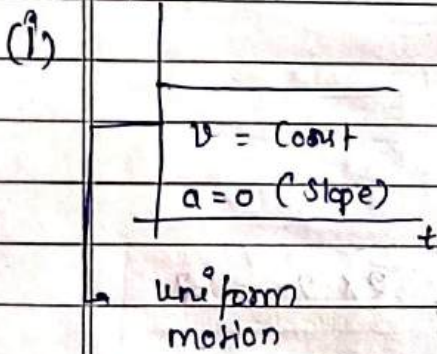 (i)
v = Const
a = 0 (Slope)
t
uniform
motion